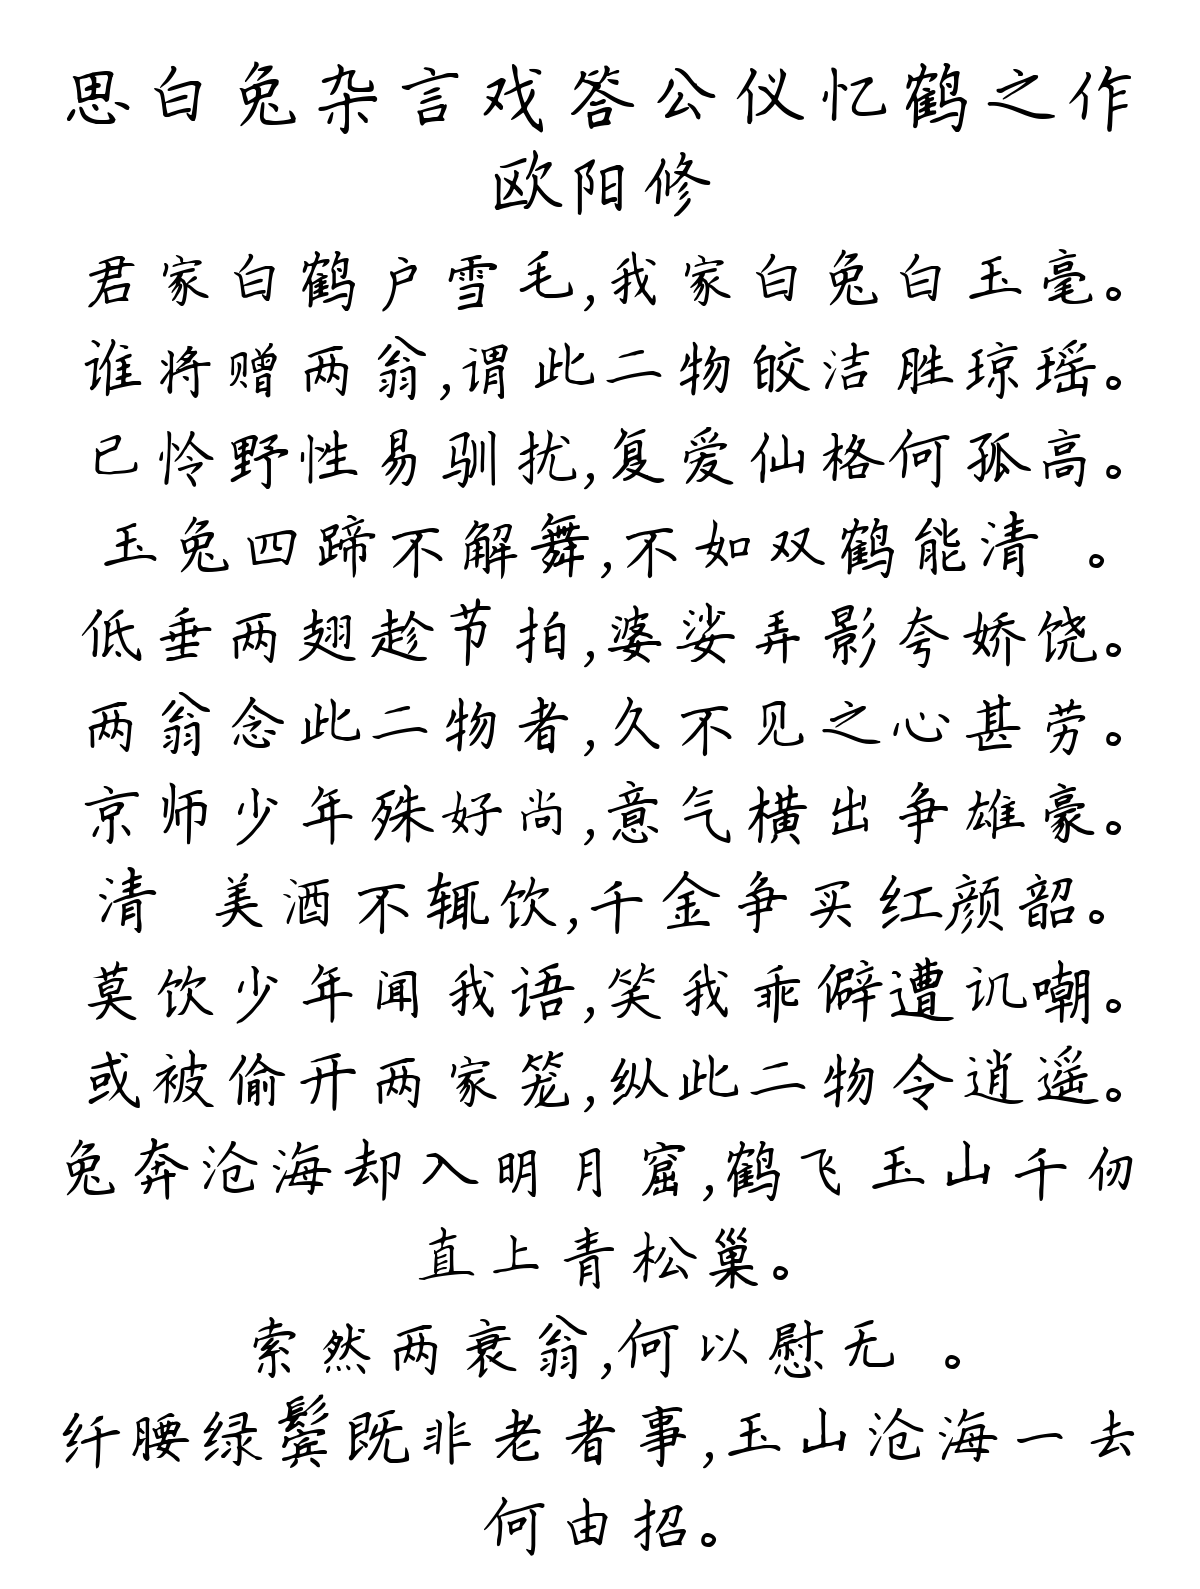 思白兔杂言戏答公仪忆鹤之作
欧阳修
君家白鹤户雪毛,我家白兔白玉毫。
谁将赠两翁,谓此二物皎洁胜琼瑶。
已怜野性易驯扰,复爱仙格何孤高。
玉兔四蹄不解舞,不如双鹤能清 。
低垂两翅趁节拍,婆娑弄影夸娇饶。
两翁念此二物者,久不见之心甚劳。
京师少年殊好尚,意气横出争雄豪。
清 美酒不辄饮,千金争买红颜韶。
莫饮少年闻我语,笑我乖僻遭讥嘲。
或被偷开两家笼,纵此二物令逍遥。
兔奔沧海却入明月窟,鹤飞玉山千仞
直上青松巢。
索然两衰翁,何以慰无 。
纤腰绿鬓既非老者事,玉山沧海一去
何由招。